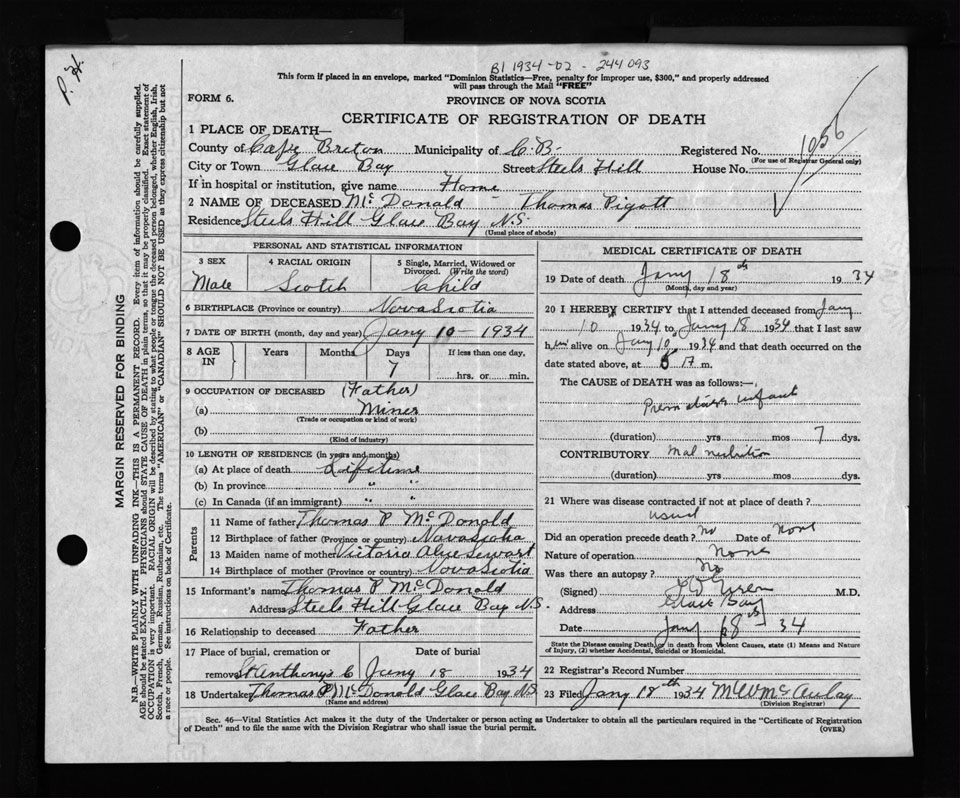 B1 1934-02 - 244093
P. H.
This form if placed in an envelope, marked "Dominion Statistics—Free, penalty for improper use, $300," and properly addressed
will pass through the Mail "FREE"
FORM 6.
PROVINCE OF NOVA SCOTIA
CERTIFICATE OF REGISTRATION OF DEATH
1056
1 PLACE OF DEATH—
County of Cape Breton Municipality of C.B. Registered No.
(For use of Registrar General only)
City or Town Glace Bay Street Steels Hill House No.
If in hospital or institution, give name Home
2 NAME OF DECEASED McDonald - Thomas Pigott
Residence Steels Hill Glace Bay N.S.
(Usual place of abode)
PERSONAL AND STATISTICAL INFORMATION
3 SEX 4 RACIAL ORIGIN 5 Single, Married, Widowed or
Divorced. (Write the word)
Male Scotch Child
6 BIRTHPLACE (Province or country) Nova Scotia
7 DATE OF BIRTH (month, day and year) Jany 10 - 1934
8 AGE IN Years Months Days If less than one day,
7 hrs. or min.
9 OCCUPATION OF DECEASED (Father)
(a) Miner
(Trade or occupation or kind of work)
(b)
(Kind of industry)
10 LENGTH OF RESIDENCE (in years and months)
(a) At place of death Lifetime
(b) In province " "
(c) In Canada (if an immigrant) " "
Parents
11 Name of father Thomas P McDonald
12 Birthplace of father (Province or country) Nova Scotia
13 Maiden name of mother Victoria Alice
14 Birthplace of mother (Province or country) Nova Scotia
15 Informant's name Thomas P McDonald
Address Steels Hill Glace Bay N.S.
16 Relationship to deceased Father
17 Place of burial, cremation or Date of burial
removal St Anthony's C Jany 18 1934
18 Undertaker Thomas P McDonald Glace Bay N.S.
(Name and address)
MEDICAL CERTIFICATE OF DEATH
19 Date of death Jany 18th 1934
(Month, day and year)
20 I HEREBY CERTIFY that I attended deceased from Jany
10 1934 to Jany 18 1934 that I last saw
him alive on Jany 10 1934 and that death occurred on
date stated above, at m.
The CAUSE OF DEATH was as follows:—
Premature infant
(duration) yrs mos 7 dys.
CONTRIBUTORY Mal nutrition
(duration) yrs. mos. dys.
21 Where was disease contracted if not at place of death?
usual
Did an operation precede death? No Date of None
Nature of operation None
Was there an autopsy? No
(Signed) M.D.
Address Glace Bay
Date Jany 18th 34
State the Disease causing Death, or in death from Violent Causes, state (1) Means and
Nature of Injury, (2) whether Accidental, Suicidal or Homicidal.
22 Registrar's Record Number
23 Filed Jany 18th 1934 McAulay
(Division Registrar)
Sec. 46—Vital Statistics Act makes it the duty of the Undertaker or person acting as Undertaker to obtain all the particulars required in the "Certificate of Registration
of Death" and to file the same with the Division Registrar who shall issue the burial permit. (OVER)
MARGIN RESERVED FOR BINDING
N.B.—WRITE PLAINLY WITH UNFADING INK—THIS IS A PERMANENT RECORD. Every item of information should be carefully supplied.
AGE should be stated EXACTLY. PHYSICIANS should STATE CAUSE OF DEATH in plain terms, so that it may be properly classified. Exact statement of
OCCUPATION is very important. RACIAL ORIGIN will be described by stating to what people or tongue the deceased person belonged, whether English, Irish,
Scotch, French, German, Russian, Ruthenian, etc. The terms "AMERICAN" or "CANADIAN" SHOULD NOT BE USED as they express citizenship but not
a race or people. See instructions on back of Certificate.